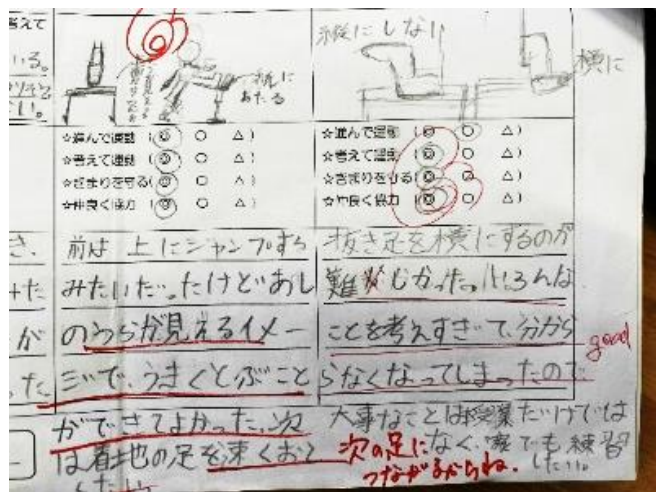 考えて
いる。
たい。
縦に
あたる
縦にしない
横に
☆進んで運動 (◎ ○ △)
☆考えて運動 (◎ ○ △)
☆きまりを守る(◎ ○ △)
☆仲良く協力 (◎ ○ △)
☆進んで運動 (◎ ○ △)
☆考えて運動 (◎ ○ △)
☆きまりを守る(◎ ○ △)
☆仲良く協力 (◎ ○ △)
き、
みた
が
った
前は上にジャンプする
みたいだったけどあし
のうらが見えるイメー
ジで、うまくとぶこと
ができてよかった。次
は着地の足を速くおと
したい
抜き足を横にするのが
難しかった。いろんな
ことを考えすぎて、分から
らなくなってしまったので
大事なことは授業だけでは
なく、家でも練習
したい。
good
次の足に
つながるからね。